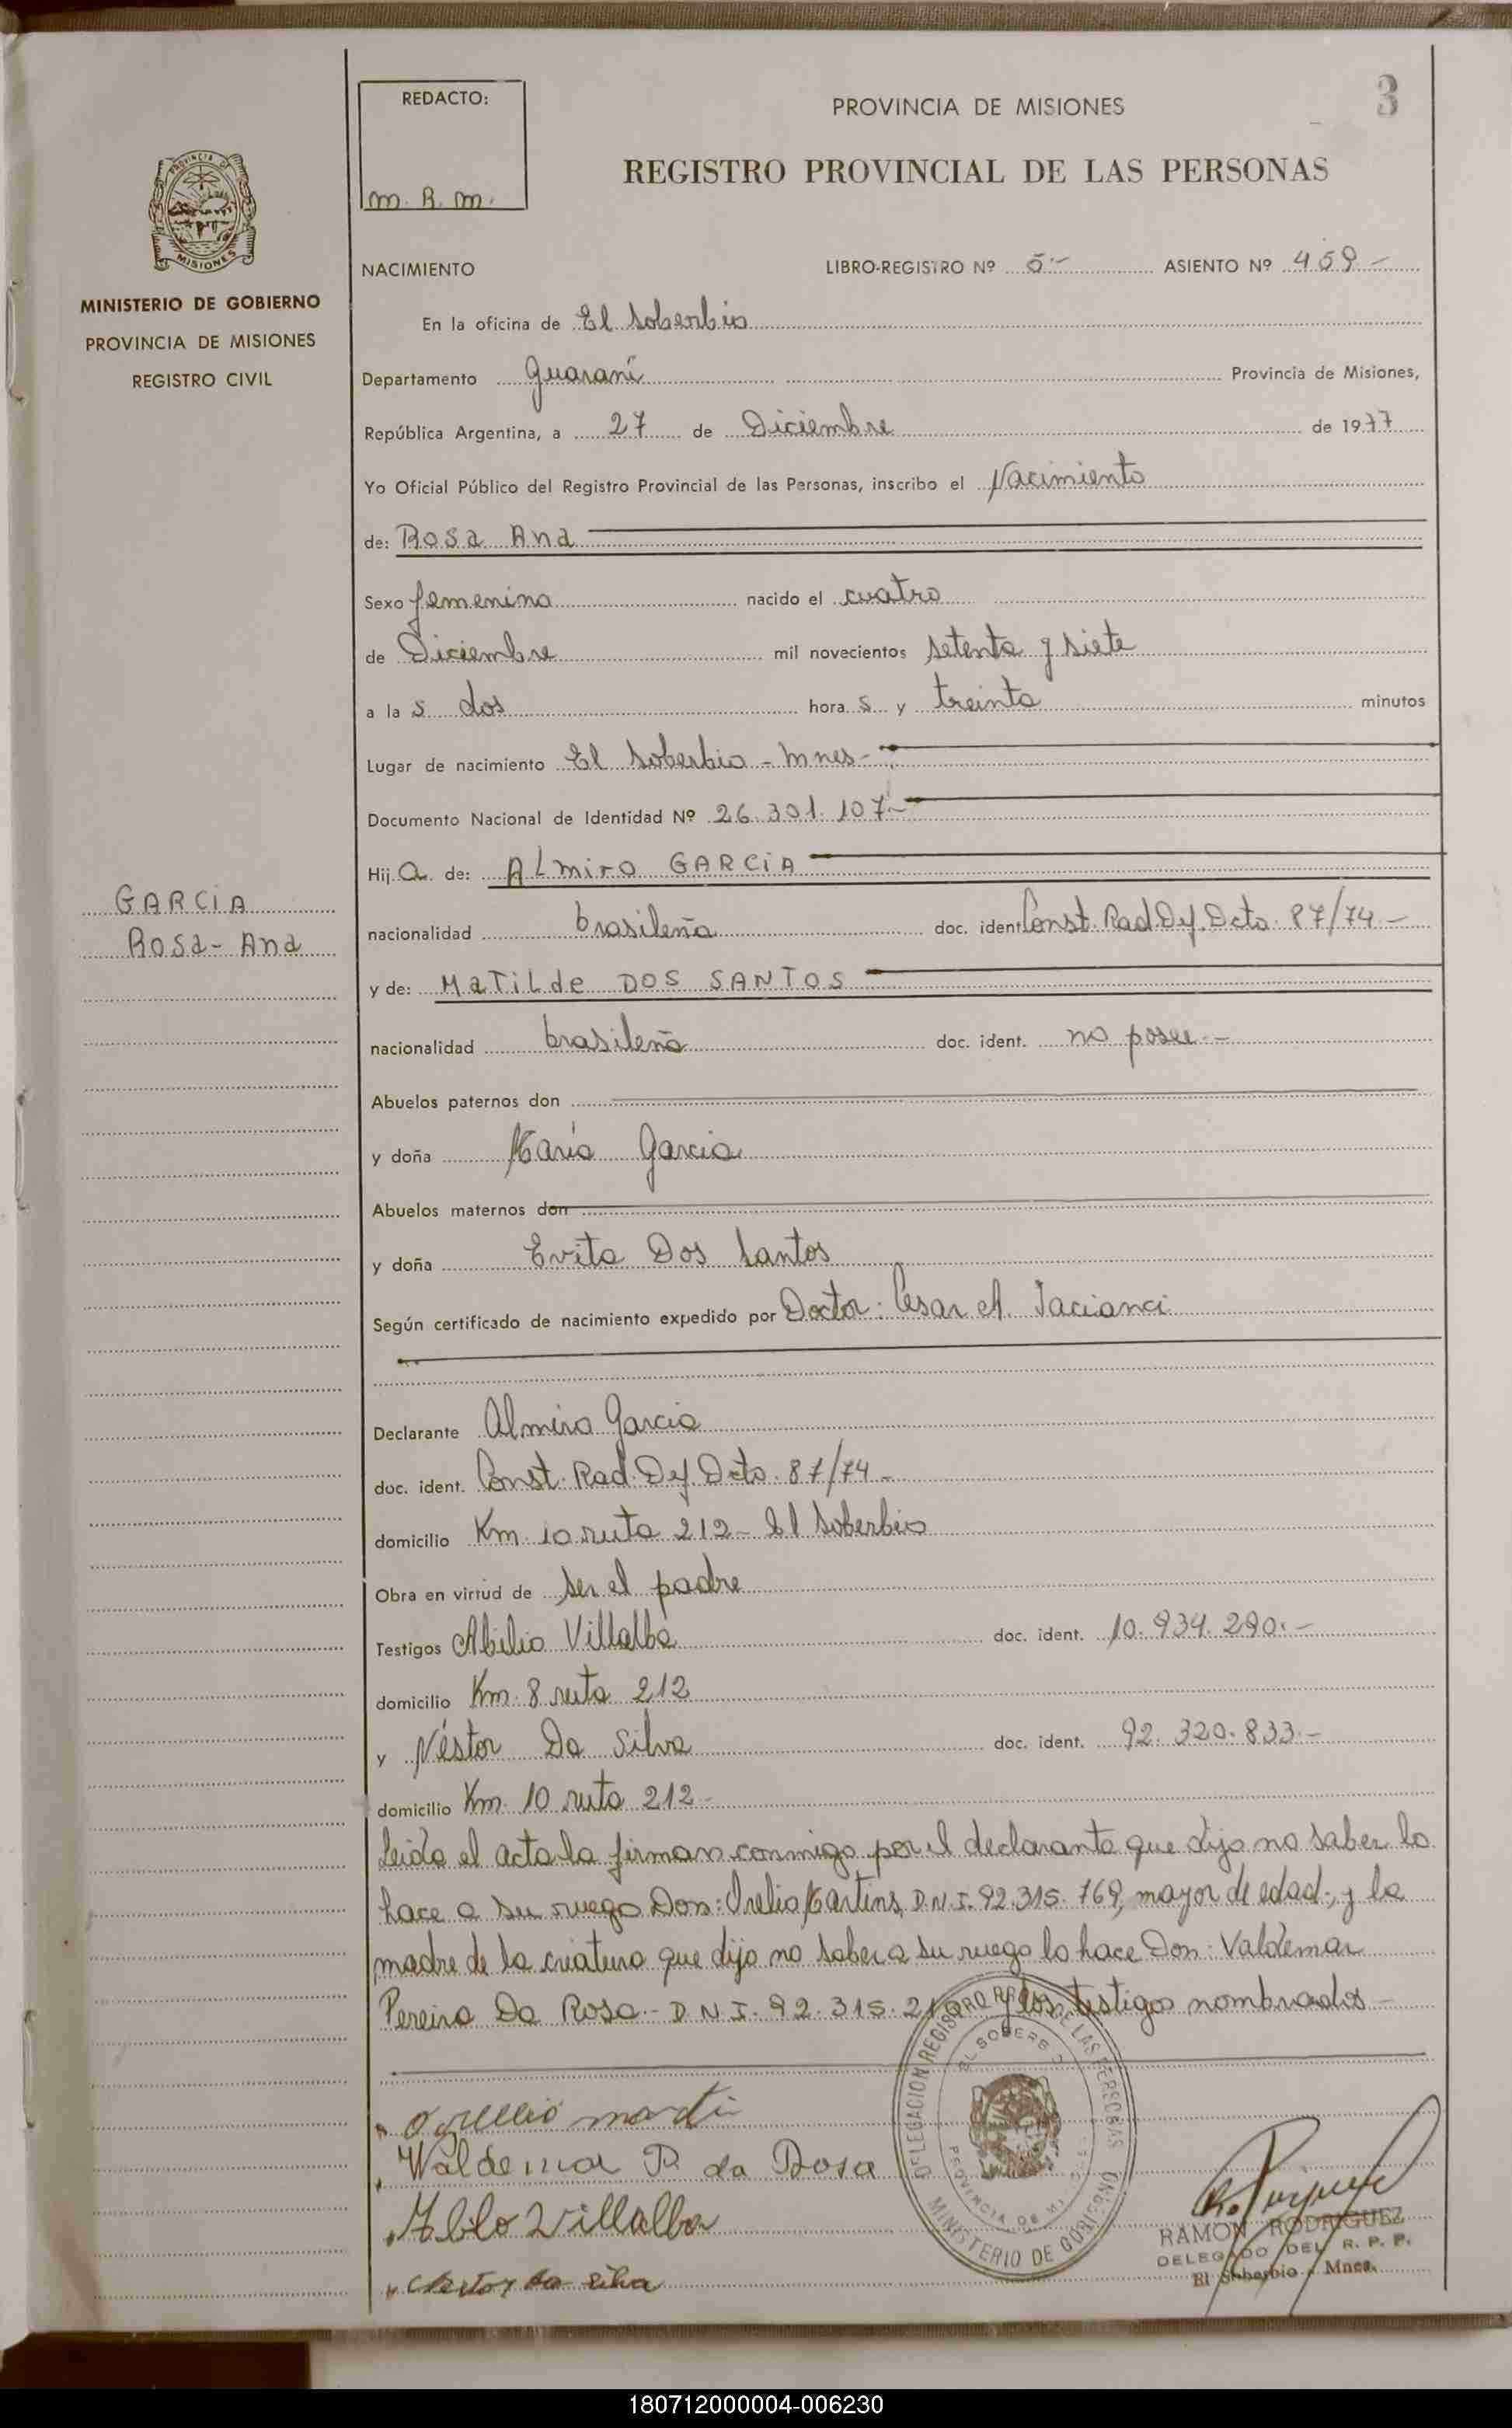 REDACTO:
m. R. m.
PROVINCIA DE MISIONES
3
REGISTRO PROVINCIAL DE LAS PERSONAS
PROVINCIA DE
MISIONES
MINISTERIO DE GOBIERNO
PROVINCIA DE MISIONES
REGISTRO CIVIL
NACIMIENTO LIBRO-REGISTRO Nº 5.- ASIENTO Nº 459-
En la oficina de El Soberbio
Departamento Guaraní Provincia de Misiones,
República Argentina, a 27 de Diciembre de 1977
Yo Oficial Público del Registro Provincial de las Personas, inscribo el Nacimiento
de: Rosa Ana
Sexo femenino nacido el cuatro
de Diciembre mil novecientos setenta y siete
a la s dos hora s y treinta minutos
Lugar de nacimiento El Soberbio - Mnes-
Documento Nacional de Identidad Nº 26.301.107-
Hij a de: ALmiro GARCIA
GARCIA
Rosa- Ana
nacionalidad brasileña doc. ident Const. Rad. Def. Dcto. 87/74-
y de: MaTiLde DOS SANTOS
nacionalidad brasileña doc. ident. no posee.-
Abuelos paternos don
y doña María Garcia
Abuelos maternos don
y doña Evita Dos Santos
Según certificado de nacimiento expedido por Doctor: Cesar A. Jacianci
Declarante Almiro Garcia
doc. ident. Const. Rad. Def. Dcto. 87/74-
domicilio Km. 10 ruta 212- El Soberbio
Obra en virtud de ser el padre
Testigos Abilio Villalba doc. ident. 10.934.290.-
domicilio Km. 8 ruta 212
y Néstor Da Silva doc. ident. 92.320.833.-
domicilio Km. 10 ruta 212-
Leido el acta la firman conmigo por el declarante que dijo no saber lo
hace a su ruego Don: Orelio Martins D.N.I. 92.315.769, mayor de edad; y la
madre de la criatura que dijo no saber a su ruego lo hace Don: Valdemar
Pereira Da Rosa.- D.N.I. 92.315. y los testigos nombrados-
DELEGACION REGISTRO DE LAS PERSONAS
EL SOBERBIO
PROVINCIA DE
MINISTERIO DE GOBIERNO
Waldemar P. da Rosa
Villalba
Nestor da silva
RAMON RODRIGUEZ
DELEGADO DEL R. P. P.
El Soberbio - Mnes.
180712000004-006230